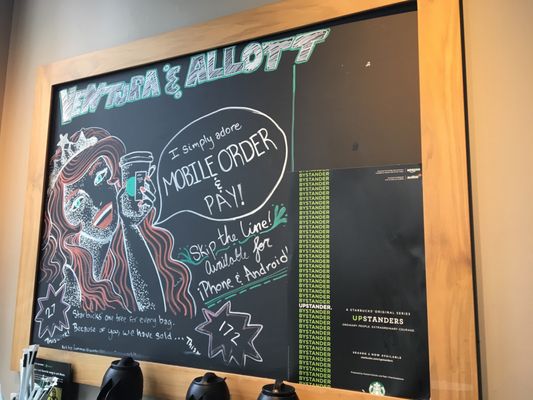 Ventura & Allott
I simply adore
MOBILE ORDER
&
PAY!
Skip the line!
available for
iPhone & Android!
27
Starbucks
one tree for every bag.
Because of you, we have sold...
172
BYSTANDER
BYSTANDER
BYSTANDER
BYSTANDER
BYSTANDER
BYSTANDER
BYSTANDER
BYSTANDER
BYSTANDER
BYSTANDER
BYSTANDER
UPSTANDER.
BYSTANDER
BYSTANDER
BYSTANDER
BYSTANDER
BYSTANDER
BYSTANDER
A STARBUCKS ORIGINAL SERIES
UPSTANDERS
ORDINARY PEOPLE. EXTRAORDINARY COURAGE.
SEASON 2 NOW AVAILABLE